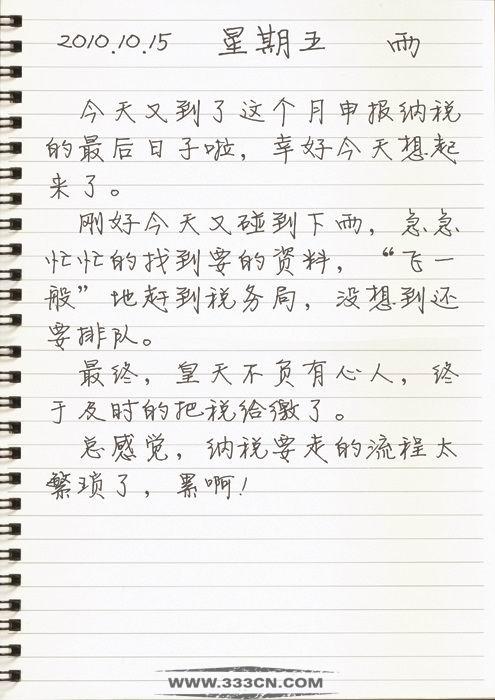 2010.10.15 星期五 雨
今天又到了这个月申报纳税
的最后日子啦，幸好今天想起
来了。
刚好今天又碰到下雨，急急
忙忙的找到要的资料，“飞一
般”地赶到税务局，没想到还
要排队。
最终，皇天不负有心人，终
于及时的把税给缴了。
总感觉，纳税要走的流程太
繁琐了，累啊！
WWW.333CN.COM